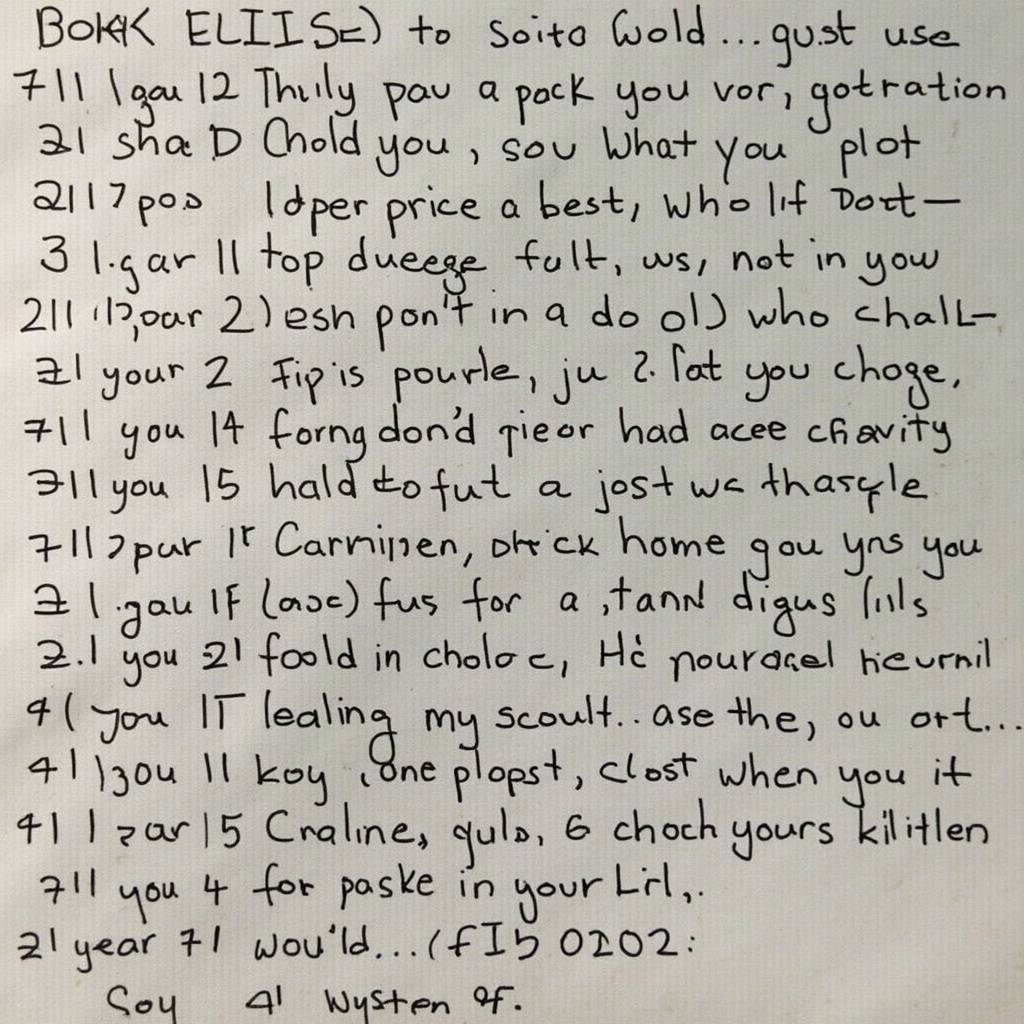 BOKK ELIISE) to soito Gold... gust use
711 1gau 12 Thuly pau a pack you vor, gotration
21 sha D Chold you, sou What you plot
2117 pos 1dper price a best, who lif Dort—
3 1.gar 11 top dueege fult, ws, not in yow
211 2) esh pon't in a do ol) who chall—
21 your 2 Fip'is pourle, ju 2. fat you choge,
711 you 14 forng don'd had acee chavity
711 you 15 hald to fut a jost wc
711 2pur Carmijsen, home gou yns you
21 .gau 1F (asc) fus for a ,tann digus
2.1 you 21 foold in choloc, Hė
41 you 1T lealing my scoult.. ase the, ou ort...
41 )3ou 11 koy ,one plopst, clost when you it
41 1 zar 15 Craline, gulo, 6 choch yours kilitlen
711 you 4 for paske in your Lirl,.
21 year 71 wou'ld...(fI5 0202:
Soy 41 Wysten of.